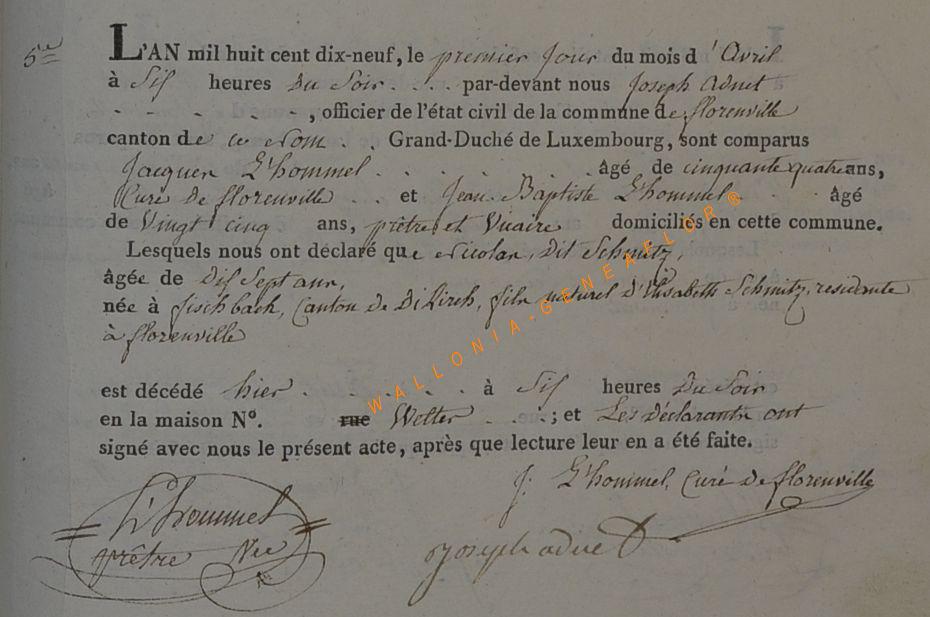 5e
L'AN mil huit cent dix-neuf, le premier Jour du mois d'Avril
à Six heures Du Soir . . . par-devant nous Joseph Adnet
- - - - - - , officier de l'état civil de la commune de florenville
canton de ce Nom . . Grand-Duché de Luxembourg, sont comparus
Jacques L'hommel . . . . . . âgé de cinquante quatre ans,
Curé de florenville . . . et Jean Baptiste L'hommel . . âgé
de Vingt cinq ans, prêtre et Vicaire domiciliés en cette commune.
Lesquels nous ont déclaré que Nicolas, Dit Schmitz,
âgée de Dix Sept ans,
née à fischbach, Canton de Dikirch, fils naturel d'Elisabeth Schmitz, residente
à florenville
est décédé hier . . . . . . à Six heures Du Soir
en la maison No. rue Welter . . . ; et Les Déclarants ont
signé avec nous le présent acte, après que lecture leur en a été faite.
J. L'hommel, Curé De florenville
L'hommel
prêtre Vic
Joseph adnet
WALLONIA-GENEAFLOR®